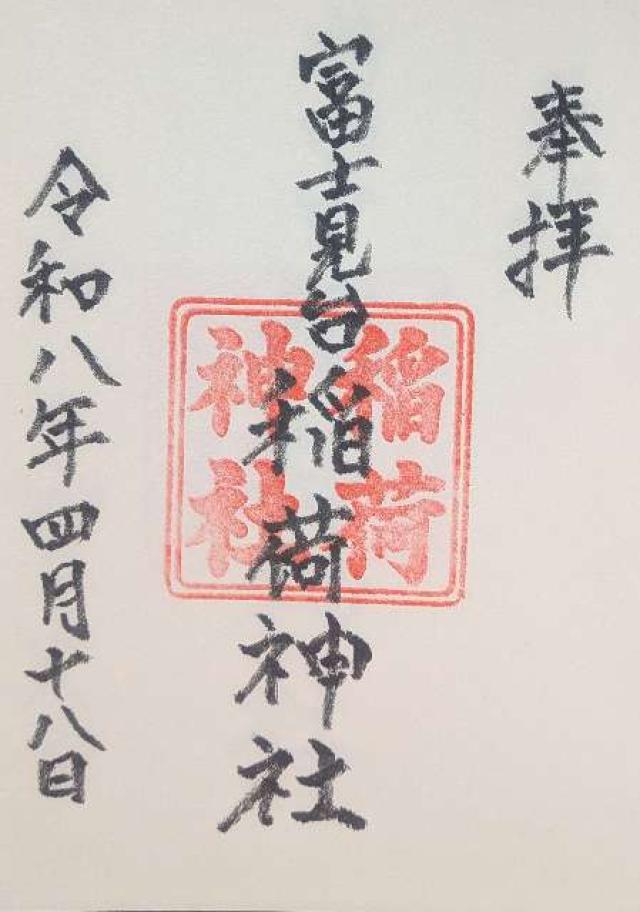 奉拝
富士見台稲荷神社
稲荷
神社
令和八年四月十八日